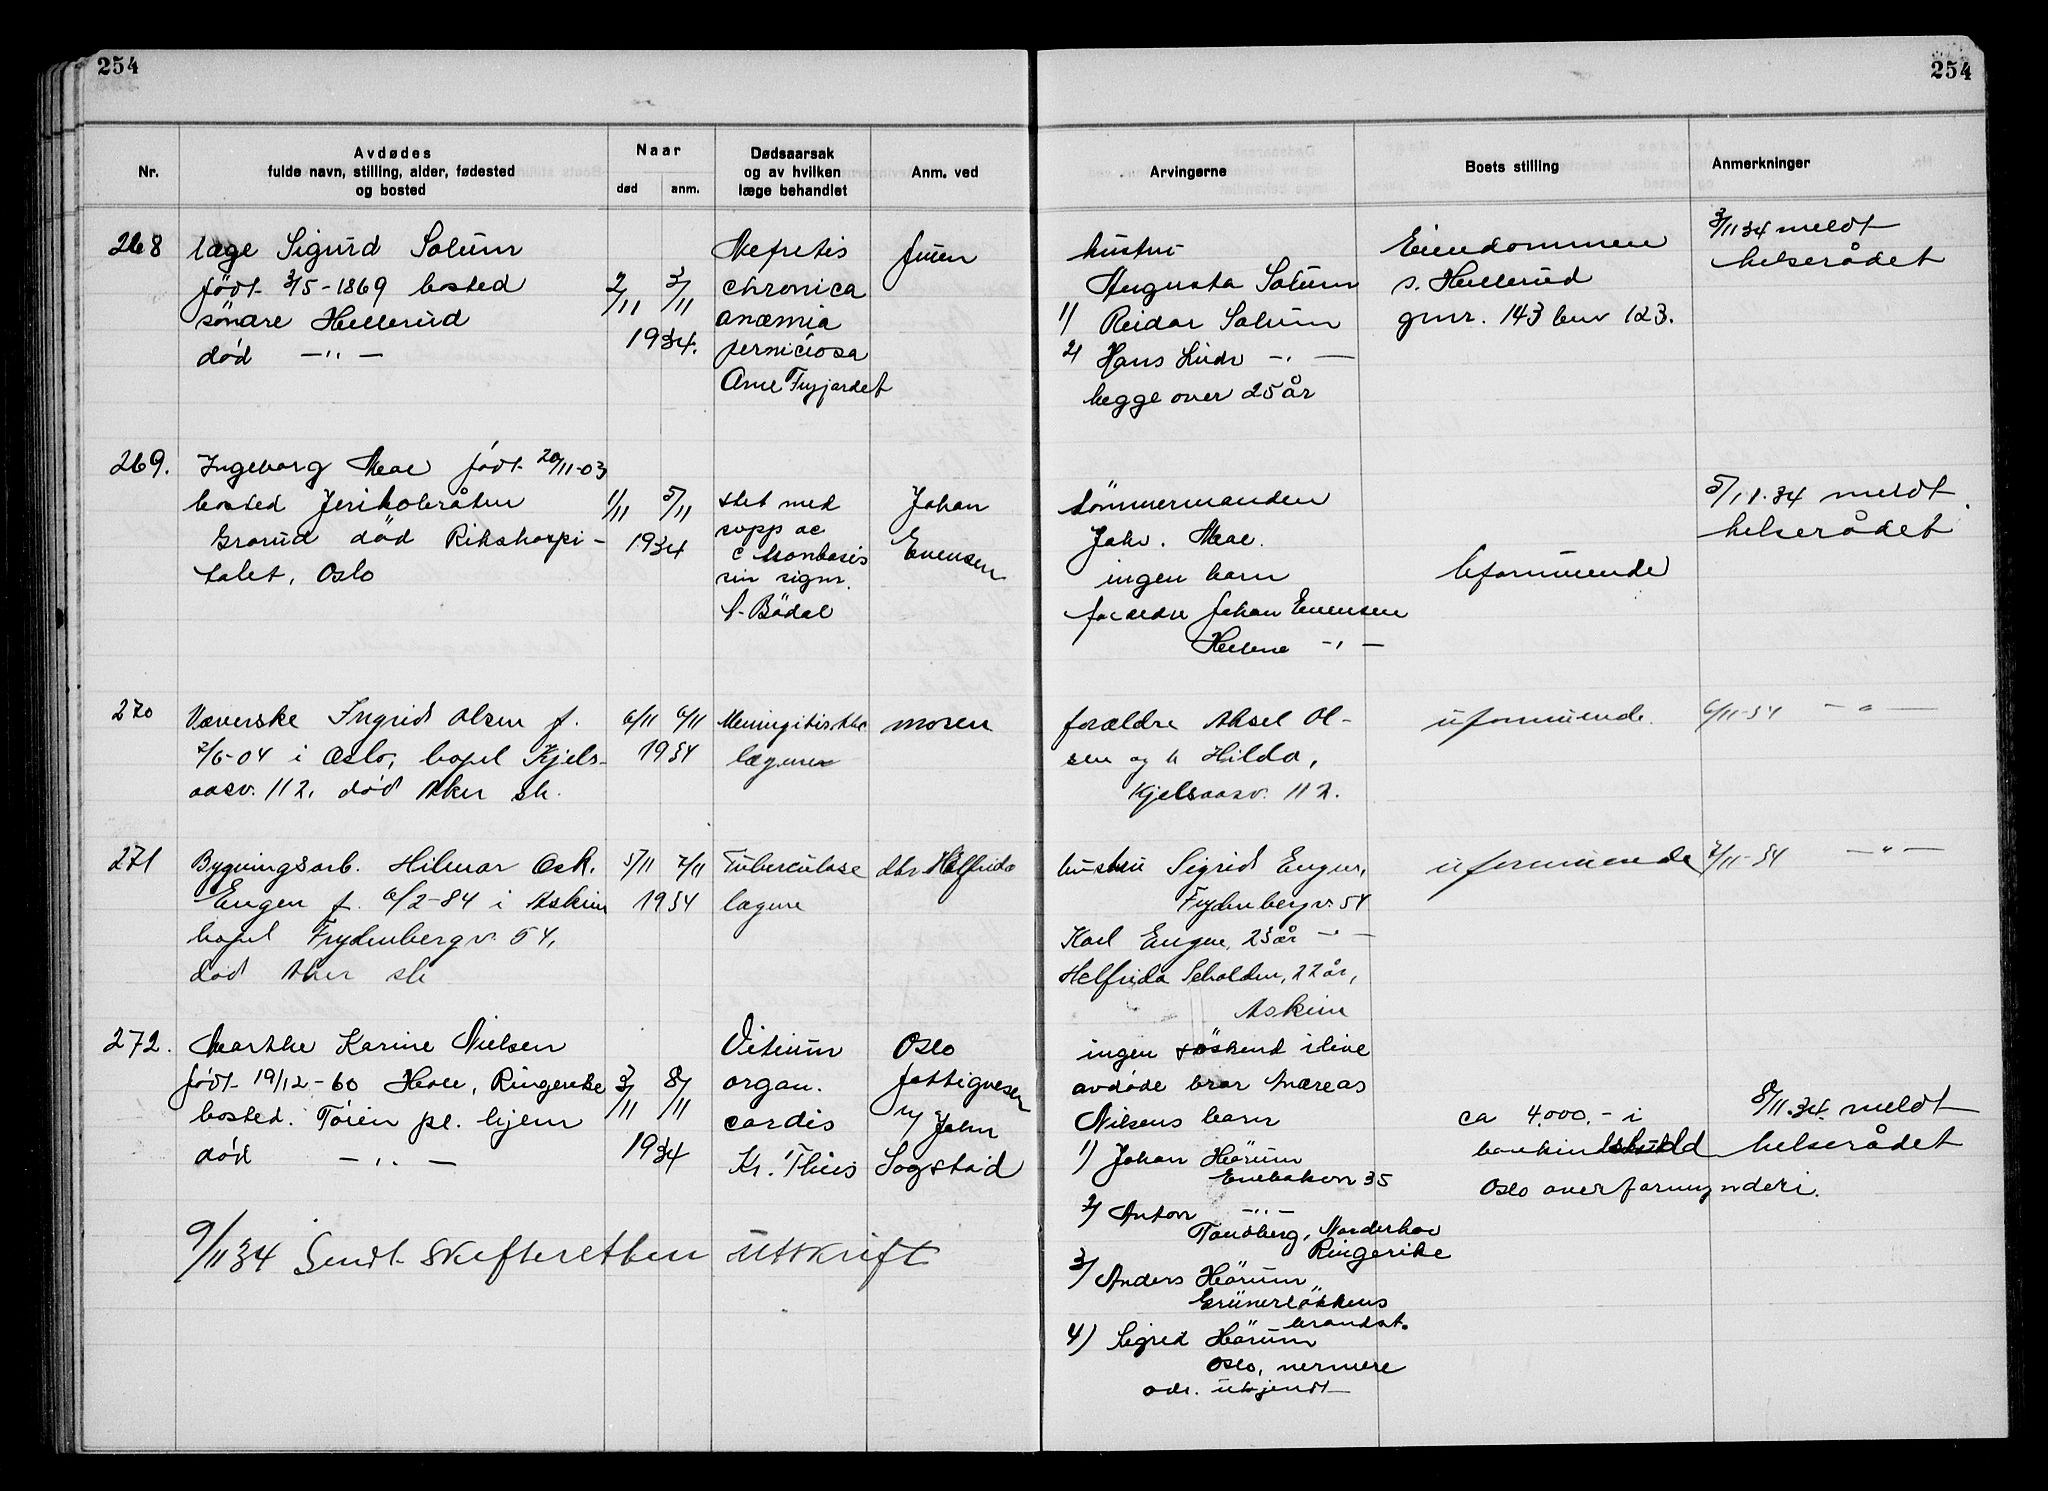 254
254
Nr.
Avdødes
fulde navn, stilling, alder, fødested
og bosted
Naar
død
anm.
Dødsaarsak
og av hvilken
læge behandlet
Anm. ved
Arvingerne
Boets stilling
Anmerkninger
268
læge Sigurd Solum
født 3/5-1869 bosted
søndre Hellerud
død —"—
2/11 3/11
1934.
Nefritis
chronica
anæmia
perniciosa
Arne
hustru
Augusta Solum
1) Reidar Solum
2) Hans —"—
begge over 25 år
Eiendommen
s. Hellerud
gnr. 143 bnr 123.
3/11 34 meldt
helserådet
269.
Ingeborg Moe født 20/11-03
bosted Jerikobråten
Grorud død Rikshospi-
talet, Oslo
1/11 5/11
1934
Johan
Evensen
tömmermanden
Joh. Moe.
ingen barn
Johan Evensen
Helene —"—
uformuende
5/11.34 meldt
helserådet
270
Væverske Ingrid Olsen f.
2/6-04 i Oslo, bopel Kjels-
aasv. 112, død Aker sh.
6/11 6/11
1934
Meningitis tbc
lægene
moren
forældre Aksel Ol-
sen og h Hilda,
Kjelsaasv. 112.
uformuende.
6/11-34 —"—
271
Bygningsarb. Hilmar Osk.
Engen f. 6/2-84 i Askim
bopel Frydenbergv. 54,
død Aker sh
5/11 7/11
1934
Tuberculose
lægene
dtr. Helfrida
hustru Sigrid Engen,
Frydenbergv. 54
Karl Engen, 23 år —"—
Helfrida 22 år,
Askim
uformuende
7/11-34 —"—
272.
Marthe Karine Nielsen
født 19/12-60 Hole, Ringerike
bosted. Töien pl. hjem
død —"—
3/11 8/11
1934
Vitium
organ.
cordis
Kr. Thiis
Oslo
fattigvesen
v/ John
Sogstad
ingen söskend ilive
avdøde bror Andreas
Nilsens barn
1) Johan Hörum
Enebakvn 35
2) Anton —"—
Tandberg, Norderhov
Ringerike
3) Anders Hörum
Grünerløkkens
brandst.
4) Sigrid Hörum
Oslo, nermere
adr. ukjendt
ca 4.000.- i
bankinnskudd
Oslo overformynderi.
8/11.34. meldt
helserådet
9/11 34 Sendt skifteretten utskrift